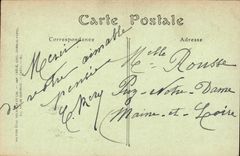 Carte Postale
Correspondance
Adresse
Merci
de votre aimable
pensée
Mlle Rousse
Puy-Notre-Dame
Maine-et-Loire